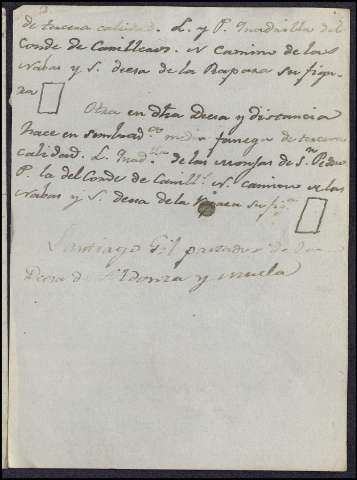 de tercera calidad. L. y P. Quadrilla del
Conde de Canilleas. N. Camino de las
Nabas y S. deesa de la Raposa su figu-
ra
Otra en dha Deesa y distancia
hace en sembrad.ra media fanega de tercera
calidad. L. Quad.lla de las monjas de S.n Pedro
P. la del Conde de Canill.s N. camino de las
Nabas y S. deesa de la Raposa su fig.ra
Santiago Gil pastador de la
Deesa de Aldonza y muela